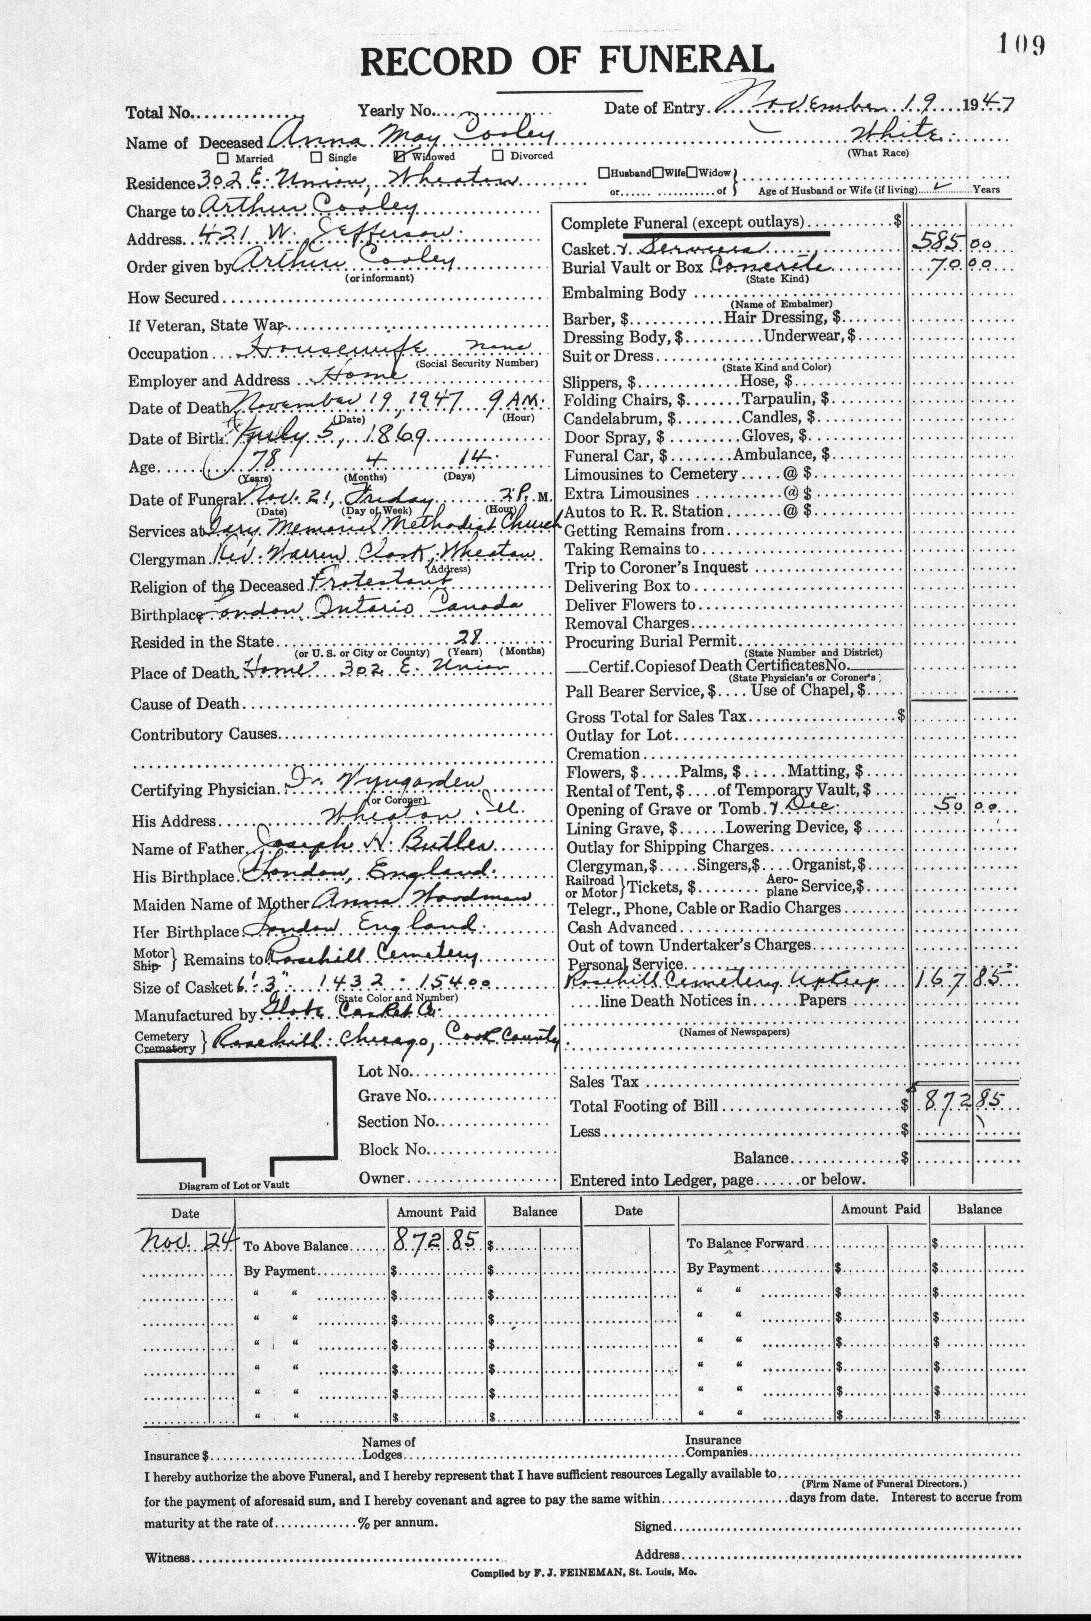 109
RECORD OF FUNERAL
Total No. Yearly No. Date of Entry November 19 1947
Name of Deceased Anna May Cooley White
Married Single Widowed Divorced (What Race)
Residence 302 E. Union, Wheaton Husband Wife Widow
or of Age of Husband or Wife (if living) Years
Charge to Arthur Cooley
Address 421 W. Jefferson
Order given by Arthur Cooley
(or informant)
How Secured
If Veteran, State War
Occupation Housewife none
(Social Security Number)
Employer and Address Home
Date of Death November 19, 1947 9 A.M.
(Date) (Hour)
Date of Birth July 5, 1869
Age 78 4 14
(Years) (Months) (Days)
Date of Funeral Nov. 21, Friday 2 P. M.
(Date) (Day of Week) (Hour)
Services at Gary Memorial Methodist Church
Clergyman Rev. Warren Clark, Wheaton
(Address)
Religion of the Deceased Protestant
Birthplace London, Ontario Canada
Resided in the State 28
(or U. S. or City or County) (Years) (Months)
Place of Death Home 302 E. Union
Cause of Death
Contributory Causes
Certifying Physician Dr. Wyngarden
(or Coroner)
His Address Wheaton Ill
Name of Father Joseph H. Butler
His Birthplace London, England.
Maiden Name of Mother Anna Woodman
Her Birthplace London England.
Motor Ship } Remains to Rosehill Cemetery
Size of Casket 6'-3" - 1432 - 15400
(State Color and Number)
Manufactured by Globe Casket Co.
Cemetery Crematory } Rosehill: Chicago, Cook County
Lot No.
Grave No.
Section No.
Block No.
Owner
Diagram of Lot or Vault
Complete Funeral (except outlays) $
Casket & Services 585 00
Burial Vault or Box Concrete 70 00
(State Kind)
Embalming Body
(Name of Embalmer)
Barber, $ Hair Dressing, $
Dressing Body, $ Underwear, $
Suit or Dress
(State Kind and Color)
Slippers, $ Hose, $
Folding Chairs, $ Tarpaulin, $
Candelabrum, $ Candles, $
Door Spray, $ Gloves, $
Funeral Car, $ Ambulance, $
Limousines to Cemetery @ $
Extra Limousines @ $
Autos to R. R. Station @ $
Getting Remains from
Taking Remains to
Trip to Coroner's Inquest
Delivering Box to
Deliver Flowers to
Removal Charges
Procuring Burial Permit
(State Number and District)
Certif. Copies of Death Certificates No.
(State Physician's or Coroner's)
Pall Bearer Service, $ Use of Chapel, $
Gross Total for Sales Tax $
Outlay for Lot
Cremation
Flowers, $ Palms, $ Matting, $
Rental of Tent, $ of Temporary Vault, $
Opening of Grave or Tomb & Dec. 50 00
Lining Grave, $ Lowering Device, $
Outlay for Shipping Charges
Clergyman, $ Singers, $ Organist, $
Railroad or Motor } Tickets, $ Aeroplane Service, $
Telegr., Phone, Cable or Radio Charges
Cash Advanced
Out of town Undertaker's Charges
Personal Service
Rosehill Cemetery Upkeep 167 85
line Death Notices in Papers
(Names of Newspapers)
Sales Tax
Total Footing of Bill $ 872 85
Less $
Balance $
Entered into Ledger, page or below.
Date Amount Paid Balance Date Amount Paid Balance
Nov. 24 To Above Balance 872 85 $ To Balance Forward $
By Payment $ $ By Payment $ $
" " $ $ " " $ $
" " $ $ " " $ $
" " $ $ " " $ $
" " $ $ " " $ $
" " $ $ " " $ $
" " $ $ " " $ $
Insurance $ Names of Lodges Insurance Companies
I hereby authorize the above Funeral, and I hereby represent that I have sufficient resources Legally available to
(Firm Name of Funeral Directors.)
for the payment of aforesaid sum, and I hereby covenant and agree to pay the same within days from date. Interest to accrue from
maturity at the rate of % per annum. Signed
Witness Address
Compiled by F. J. FEINEMAN, St. Louis, Mo.